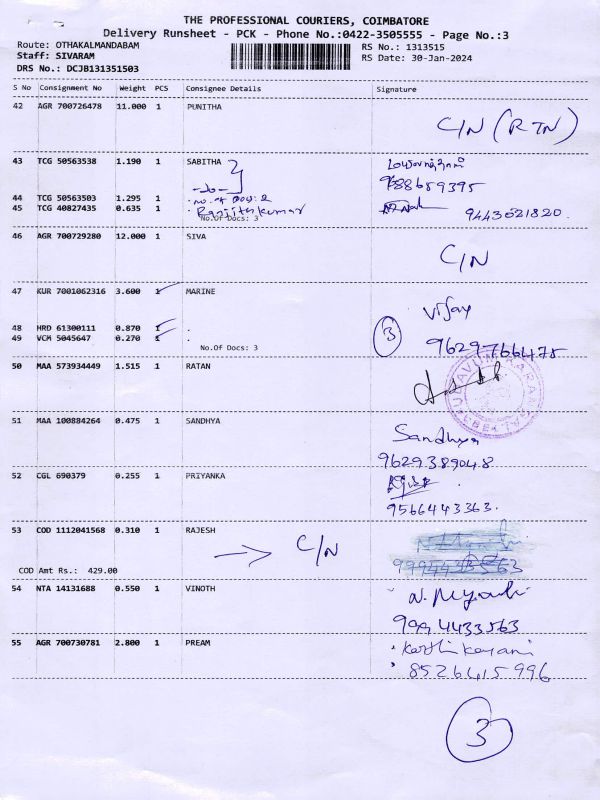 THE PROFESSIONAL COURIERS, COIMBATORE
Delivery Runsheet - PCK - Phone No.:0422-3505555 - Page No.:3
Route: OTHAKALMANDABAM
RS No.: 1313515
Staff: SIVARAM
RS Date: 30-Jan-2024
DRS No.: DCJB131351503
S No Consignment No Weight PCS Consignee Details Signature
42 AGR 700726478 11.000 1 PUNITHA
C/N (RTN)
43 TCG 50563538 1.190 1 SABITHA
9788659395
44 TCG 50563503 1.295 1
45 TCG 40827435 0.635 1 Ranjithkumar
9443521820.
No.Of Docs: 3
46 AGR 700729280 12.000 1 SIVA
C/N
47 KUR 7001062316 3.600 1 MARINE
Vijay
48 HRD 61300111 0.870 1
3
49 VCM 5045647 0.270 1
9629766475
No.Of Docs: 3
50 MAA 573934449 1.515 1 RATAN
51 MAA 100884264 0.475 1 SANDHYA
Sandhya
9629389048
52 CGL 690379 0.255 1 PRIYANKA
9566443363.
53 COD 1112041568 0.310 1 RAJESH
C/N
COD Amt Rs.: 429.00
54 NTA 14131688 0.550 1 VINOTH
9994433563
55 AGR 700730781 2.800 1 PREAM
Karthikayani
8526415996
3